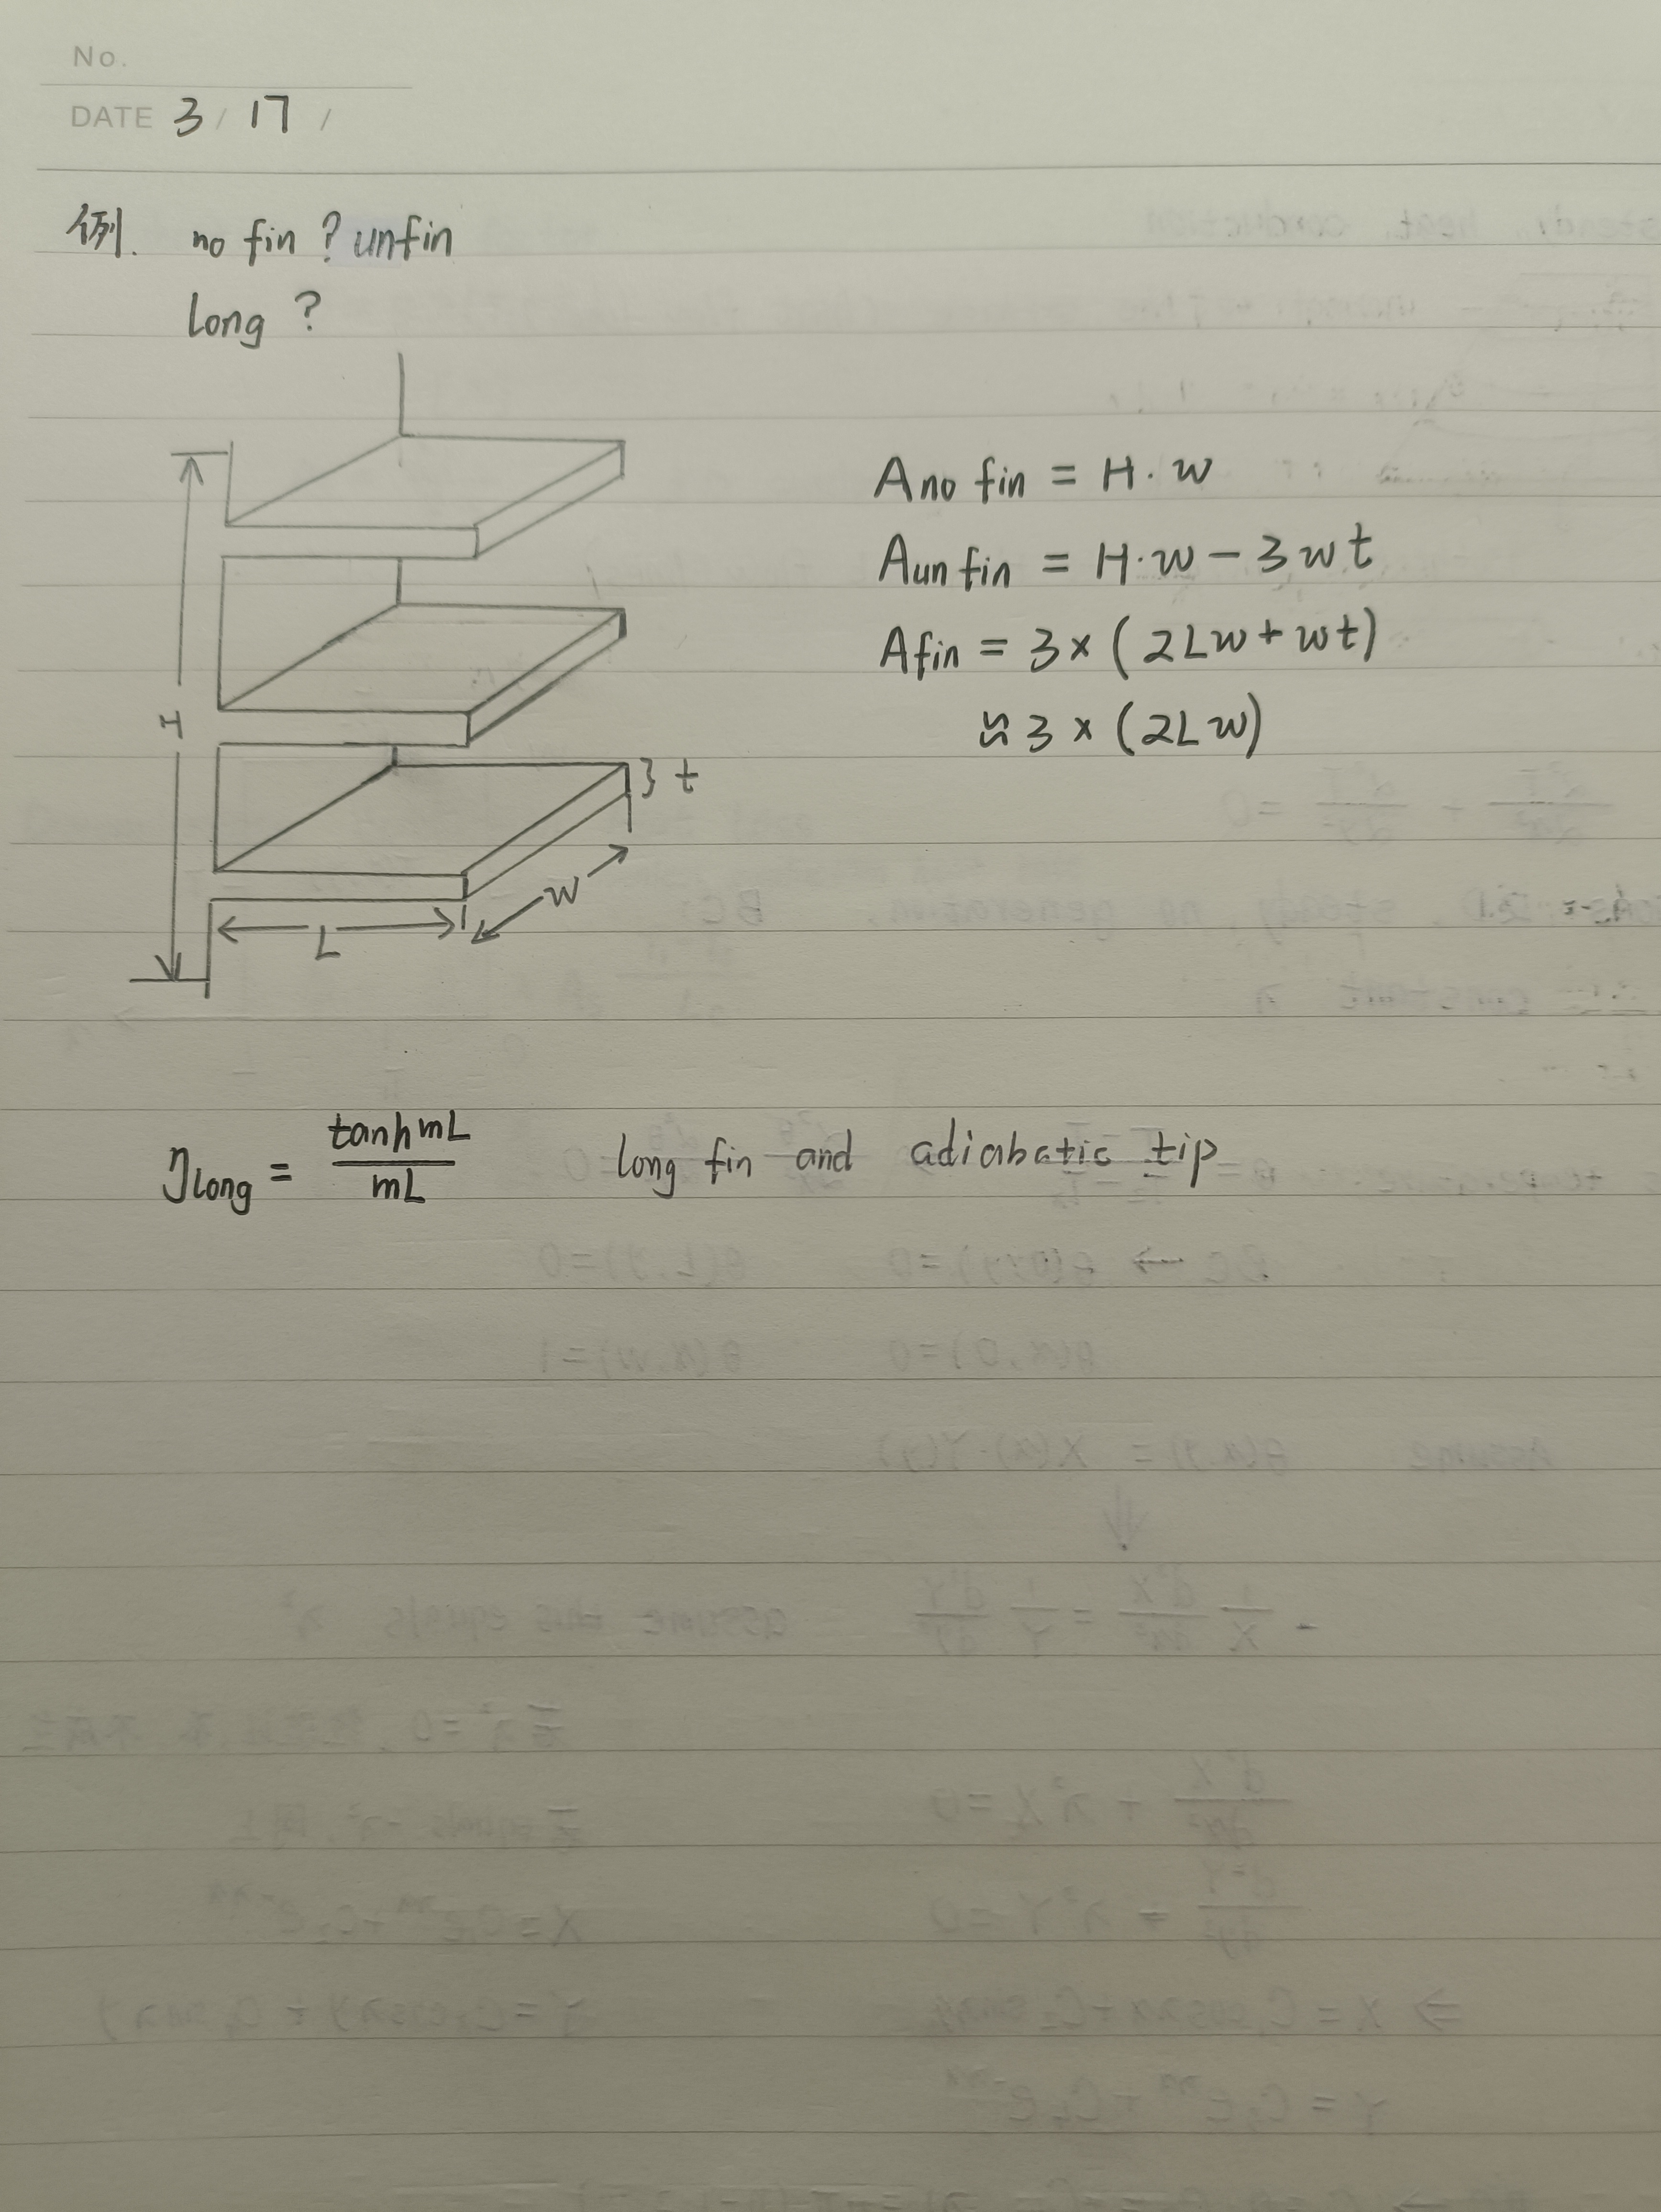 No.
DATE 3 / 17 /
例. no fin ? unfin
Long ?
H
t
w
L
Ano fin = H · w
Aun fin = H·w − 3wt
Afin = 3 × ( 2Lw + wt )
≈ 3 × ( 2Lw )
ηLong = tanh mL / mL long fin and adiabatic tip